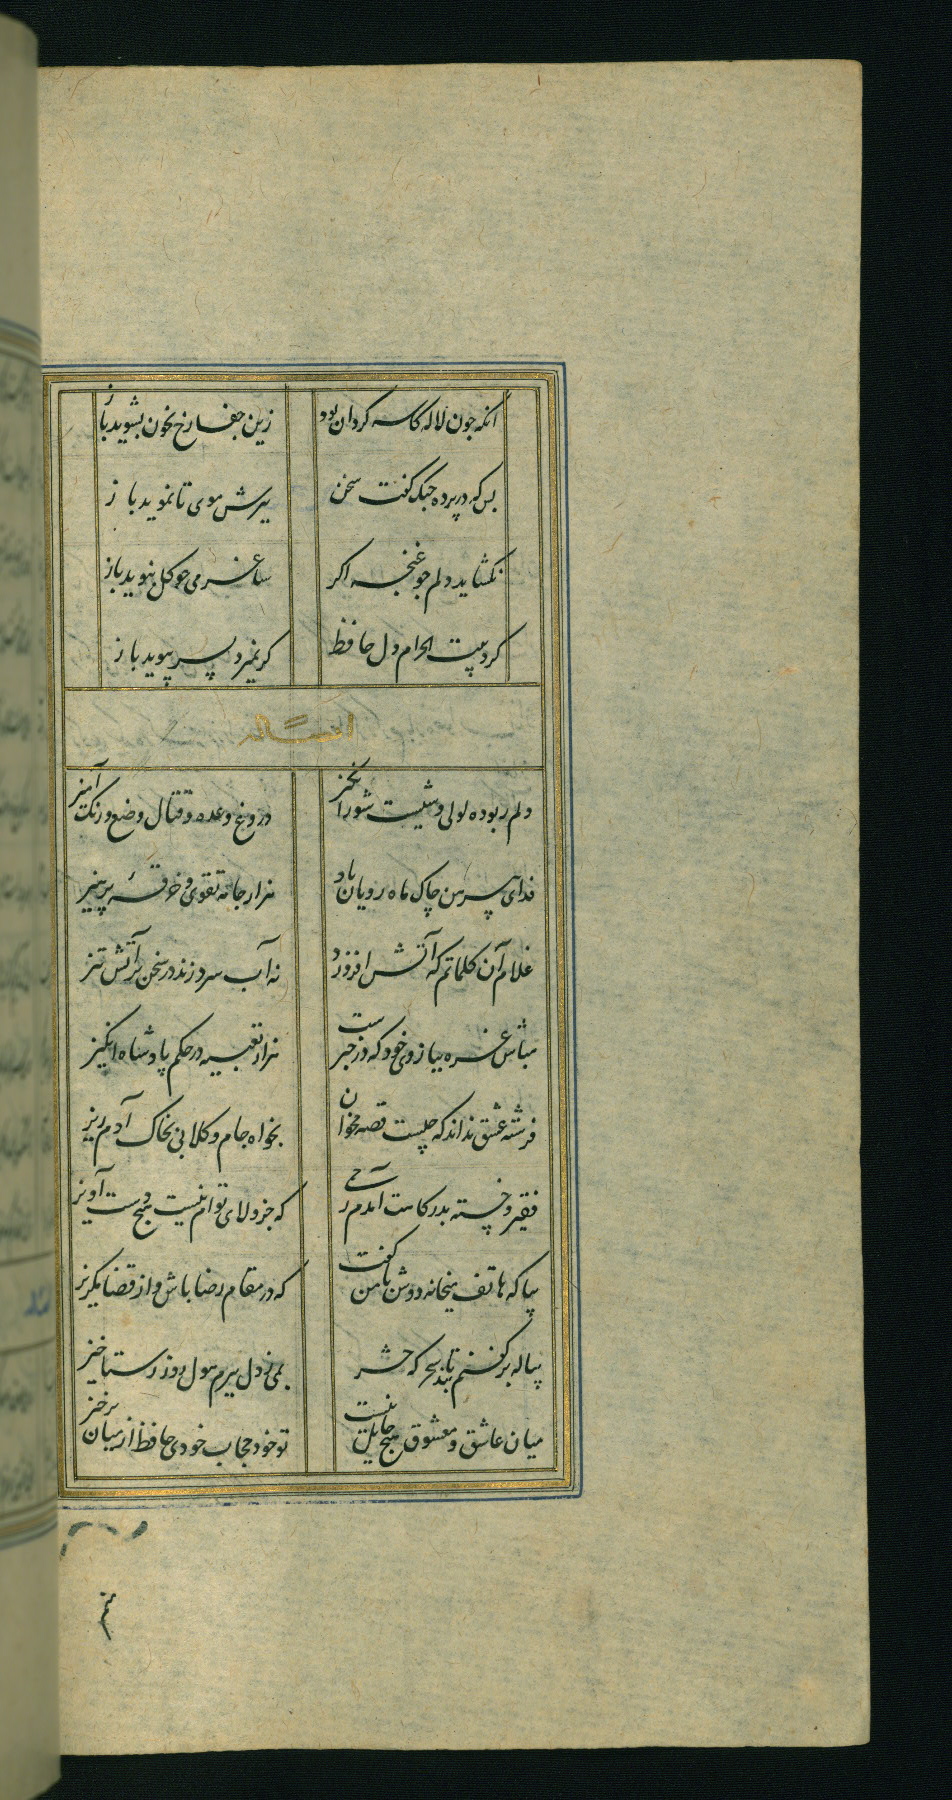 انکه چون لاله کاسه کردان بود زین جفا رخ بخون بشوید باز
بس که در پرده چنک گفت سخن ببرش موی تا نموید باز
نکشاید دلم جو غنجه اکر ساغر می جو کل نبوید باز
کرد بیت الحرام دل حافظ کر نمیرد بسر بپوید باز
ایضا له
دلم ربوده لولی وشیست شورانکیز دروغ وعده و قتال وضع و رنک آمیز
فدای پیرهن چاک ماه رویان باد هزار جامه تقوی و خرقهٔ پرهیز
غلام آن کلماتم که آتش افروزد نه آب سرد زند در سخن بر آتش تیز
مباش غره ببازوی خود که در خبرست هزار تعبیه در حکم پادشاه انکیز
فرشته عشق نداند که چیست قصه مخوان بخواه جام و کلابی بخاک آدم ریز
فقیر و خسته بدرکاهت آمدم رحمی که جز ولای توام نیست هیچ دست آویز
بیا که هاتف میخانه دوش با من کفت که در مقام رضا باش و از قضا مکریز
پیاله بر کفنم بند تا سحرکه حشر بمی ز دل ببرم هول روز رستاخیز
میان عاشق و معشوق هیچ حایل نیست تو خود حجاب خودی حافظ از میان برخیز